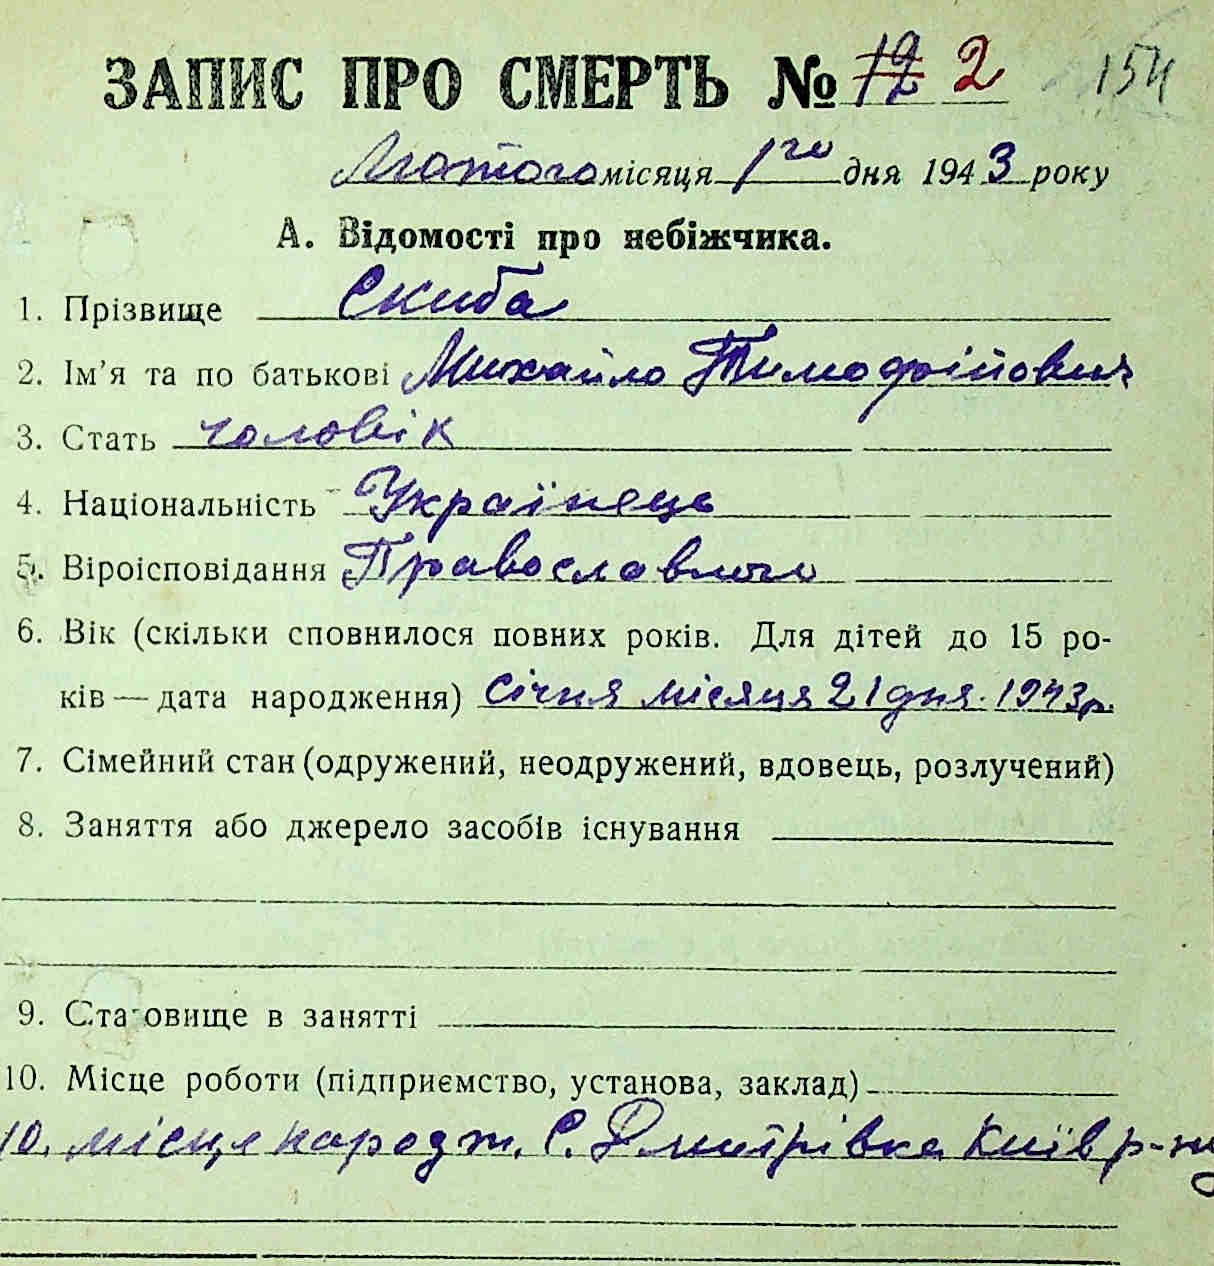 ЗАПИС ПРО СМЕРТЬ № 12 2 154
Лютого місяця 1го дня 1943 року
А. Відомості про небіжчика.
1. Прізвище Скиба
2. Ім'я та по батькові Михайло Тимофійович
3. Стать чоловік
4. Національність Українець
5. Віроісповідання Православного
6. Вік (скільки сповнилося повних років. Для дітей до 15 ро-
ків — дата народження) Січня місяця 21 дня. 1943 р.
7. Сімейний стан (одружений, неодружений, вдовець, розлучений)
8. Заняття або джерело засобів існування
9. Становище в занятті
10. Місце роботи (підприємство, установа, заклад)
10. місце народж. С. Дмитрівка Київ р-ну